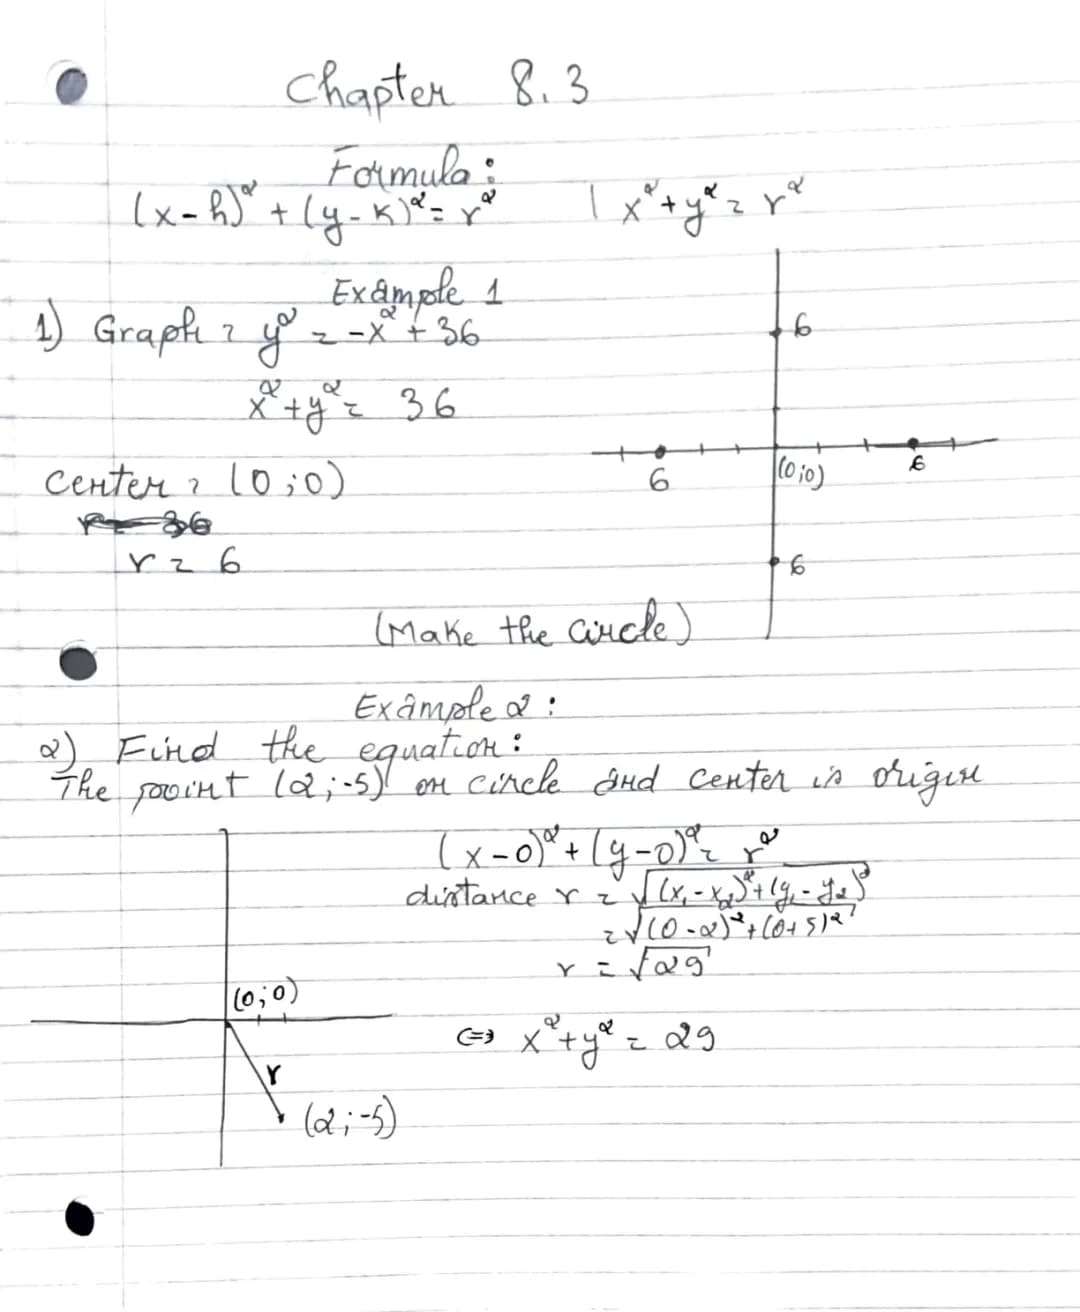 Chapter 8.3
Formula:
(x-h)² + (y-k)² = r² | x² + y² = r²
Example 1
1) Graph: y² = -x² + 36
x² + y² = 36
center: (0;0)
r = 6
6
6
(0;0)
6
6
(Make the circle)
Example 2:
2) Find the equation:
The point (2;-5) on circle and center is origin
(x-0)² + (y-0)² = r²
distance r = √(x₁-x₂)² + (y₁-y₂)²
= √(0-2)² + (0+5)²
r = √29
⇔ x² + y² = 29
(0;0)
r
(2;-5)